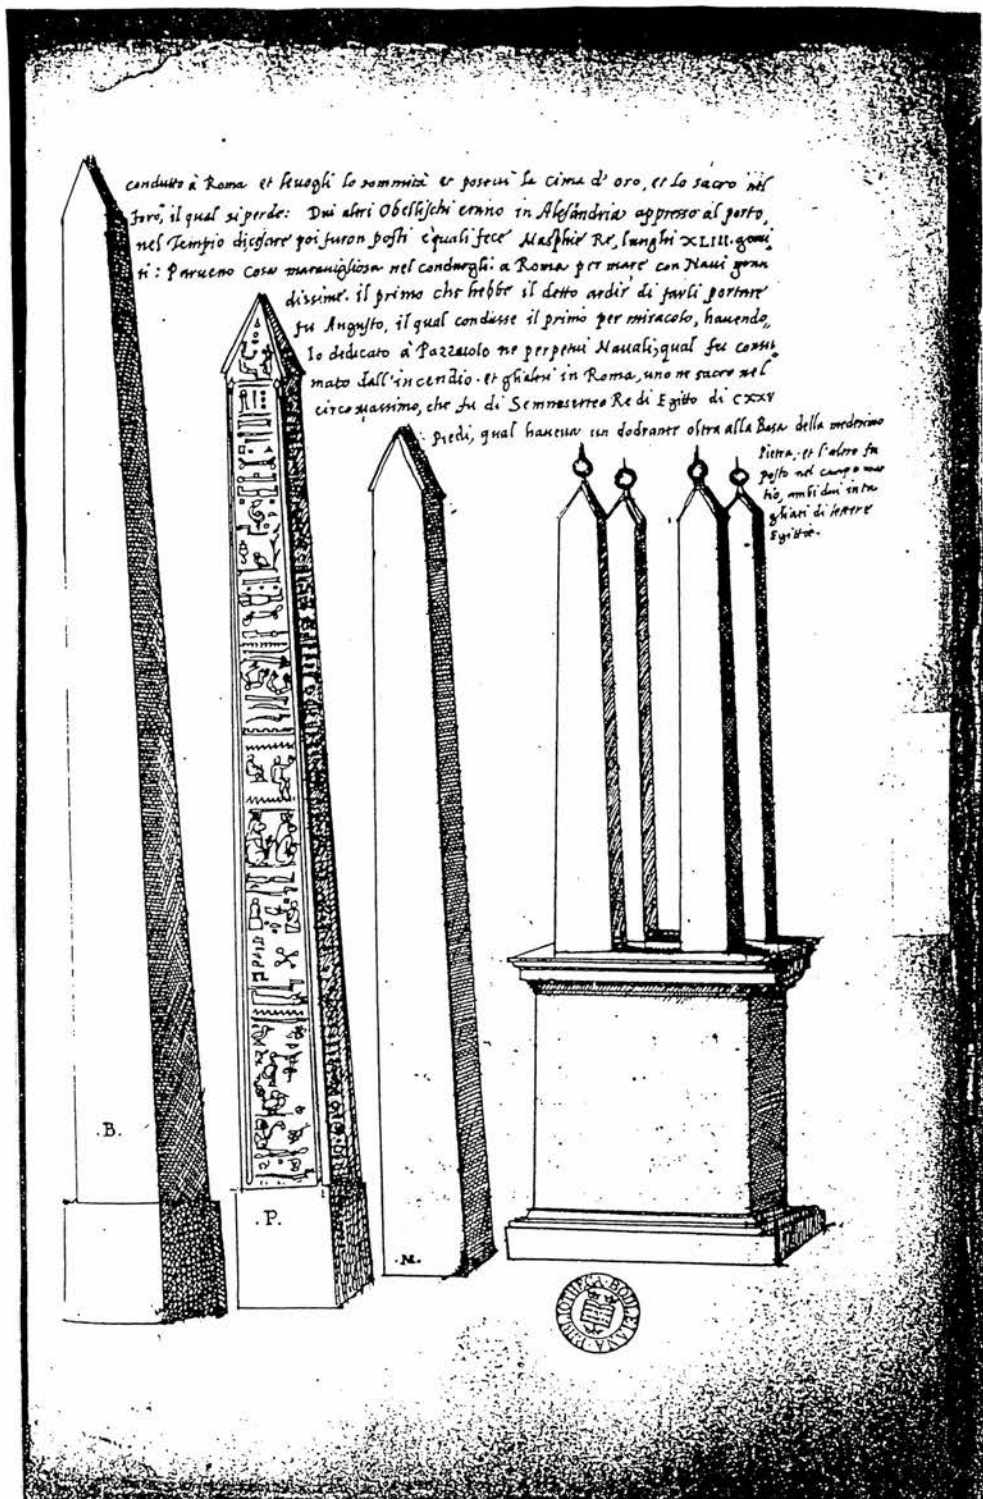 condutto à Roma et leuogli lo sommità et poseui la Cima d'oro, et lo sacro nel
foro, il qual si perde: Dui altri Obellischi erano in Alesandria appresso al porto,
nel Tempio di cesare poi furon posti e quali fece Masphie Re, lunghi XLIII. gomi
ti: Parueno Cosa marauigliosa nel condurgli à Roma per mare con Naui gran
dissime. il primo che hebbe il detto ardir di farli portare
fu Augusto, il qual condusse il primo per miracolo, hauendo,,
lo dedicato à Pazzuolo ne perpetui Nauali, qual fu consu
mato dall'incendio. et gli altri in Roma, uno ne sacro nel
circo massimo, che fu di Semneserteo Re di Egitto di CXXV
piedi, qual haueua un dodrante oltra alla Basa della medesimo
Pietra, et l'altro fu
posto nel campo mar
tio, ambi dui inta
gliati di lettere
Egittie.
.B.
.P.
.M.
BIBLIOTHECA BODLEIANA